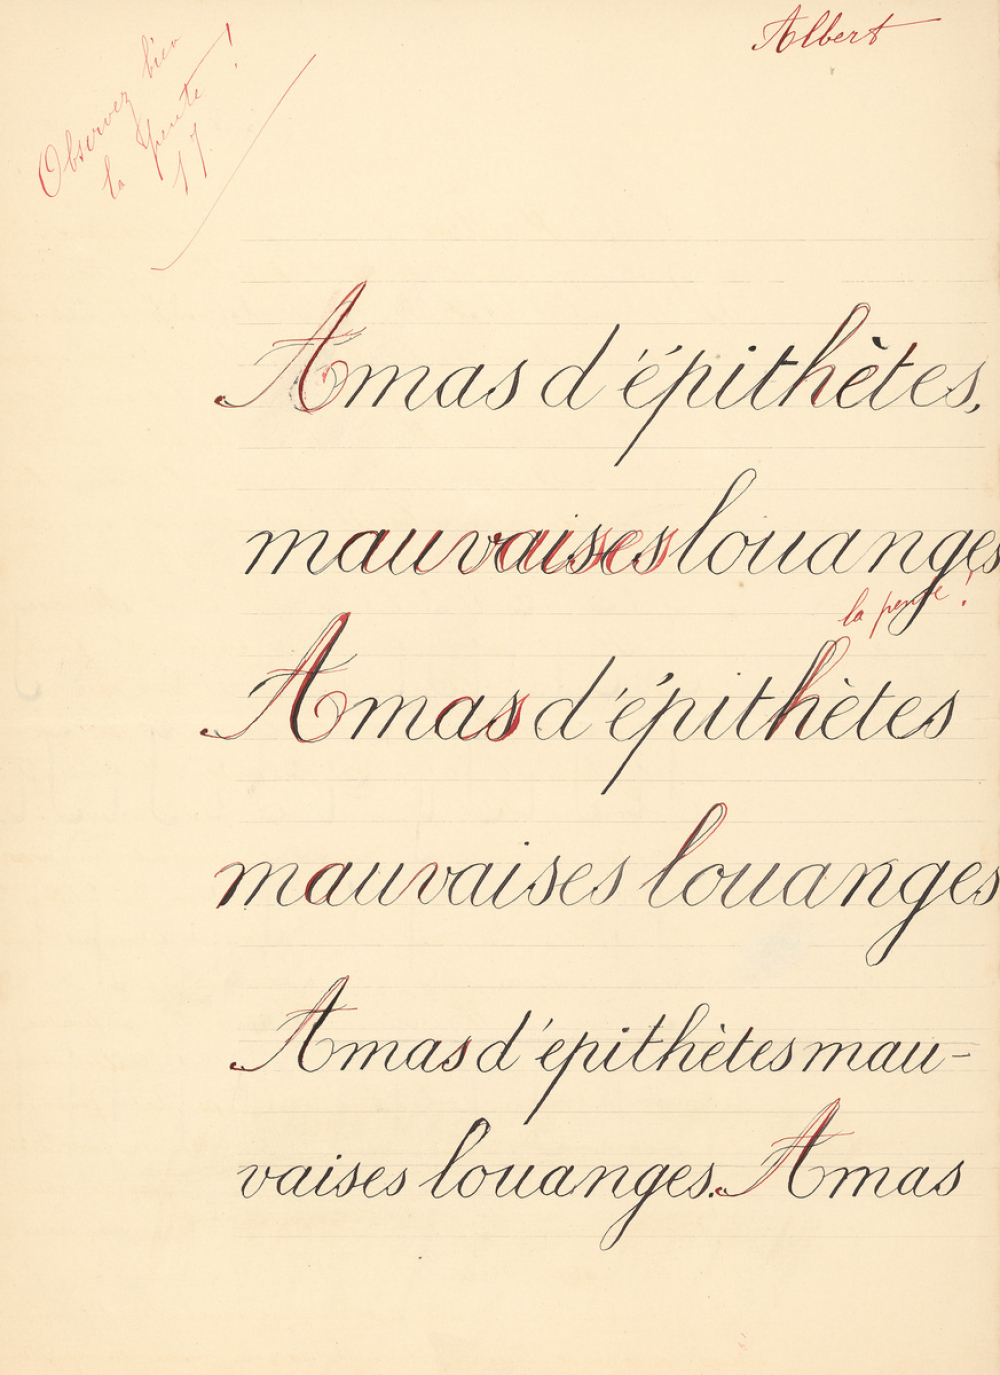 Albert
Observez bien
la pente !
17
Amas d'épithètes,
mauvaises louanges
la pente !
Amas d'épithètes
mauvaises louanges
Amas d'épithètes mau-
vaises louanges. Amas